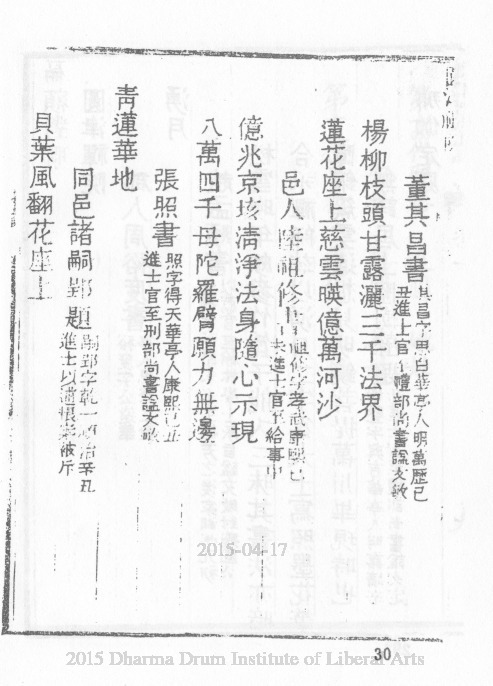 董其昌書其昌字思白華亭人明萬歷己
丑進士官 禮部尚書諡文敏
楊柳枝頭甘露灑三千法界
蓮花座上慈雲暎億萬河沙
邑人陸祖修書祖修字孝武康熙己
未進士官 給事中
億兆京垓清淨法身隨心示現
八萬四千母陀羅臂願力無邊
張照書照字得天華亭人康熙己丑
進士官至刑部尚書諡文敏
青蓮華地
同邑諸嗣郢題嗣郢字乾一順治辛丑
進士以逋賦案被斥
貝葉風翻花座上
30
2015-04-17
2015 Dharma Drum Institute of Liberal Arts